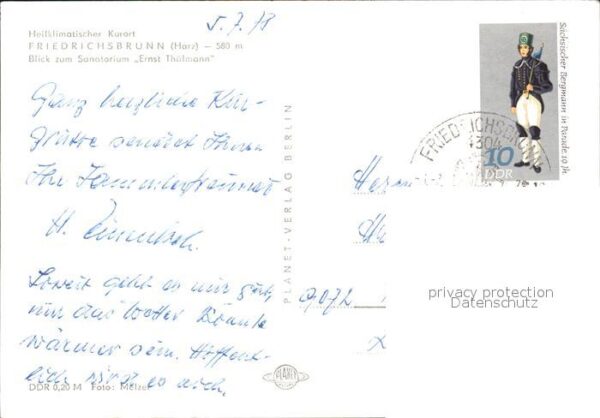 5.7.78
Heilklimatischer Kurort
FRIEDRICHSBRUNN (Harz) – 580 m
Blick zum Sanatorium „Ernst Thälmann“
Ganz herzliche Kur-
grüße sendet Ihnen
Ihr Sammlerfreund
H.
Soweit geht es mir gut,
nur das Wetter könnte
wärmer sein. Hoffent-
lich wird es auch.
DDR 0,20 M Foto: Melzer
PLANET-VERLAG BERLIN
PLANET
Sächsischer Bergmann in Parade 19. Jh.
10
DDR
FRIEDRICHSBRUNN
4304
privacy protection
Datenschutz